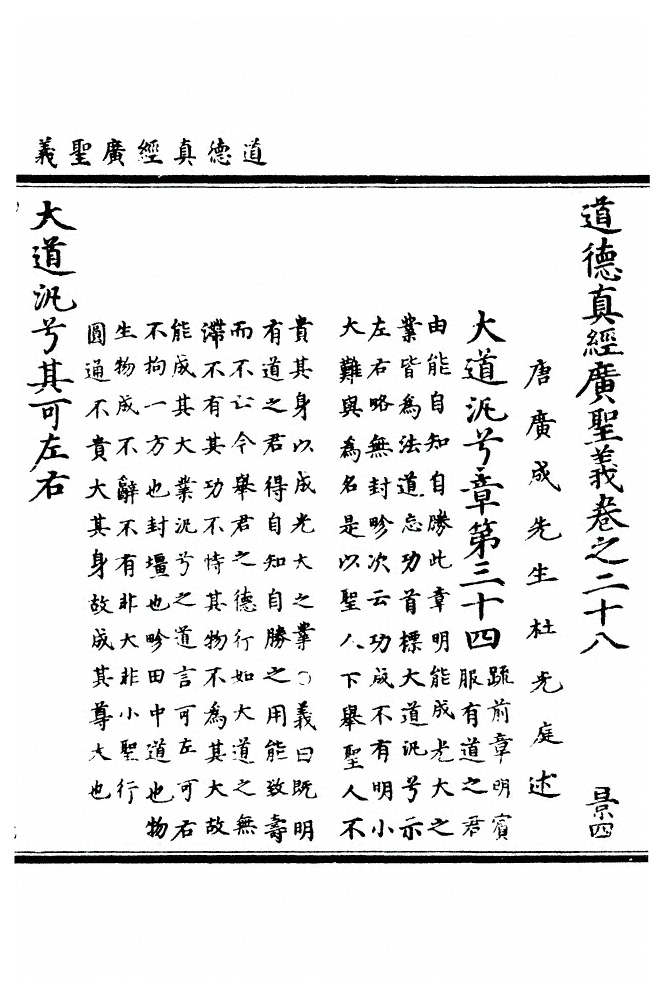 道德真經廣聖義
道德真經廣聖義卷之二十八 景四
唐廣成先生杜光庭述
大道汎兮章第三十四
疏前章明賓
服有道之君
由能自知自勝此章明能成光大之
業皆為法道忘功首標大道汎兮示
左右略無封畛次云功成不有明小
大難與為名是以聖人下舉聖人不
貴其身以成光大之業○義曰既明
有道之君得自知自勝之用能致壽
而不亡今舉君之德行如大道之無
滯不有其功不恃其物不為其大故
能成其大業汎兮之道言可左可右
不拘一方也封壃也畛田中道也物
生物成不辭不有非大非小聖行
圓通不貴大其身故成其尊大也
大道汎兮其可左右